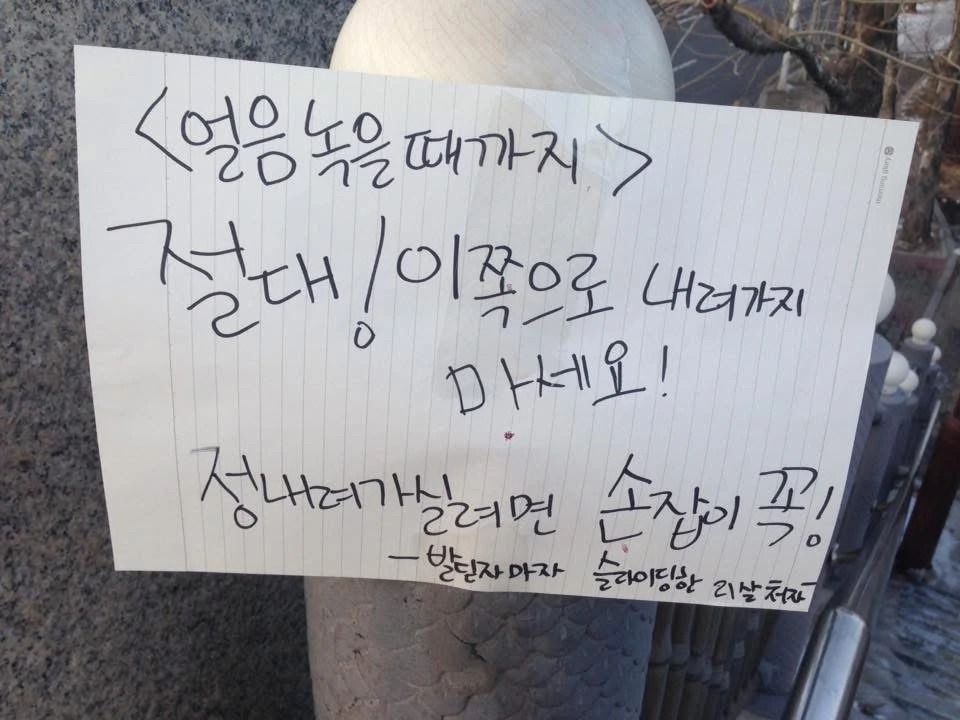 <얼음 녹을때까지>
절대! 이쪽으로 내려가지
마세요!
정내려가실려면 손잡이 꼭!
- 발딛자마자 슬라이딩한 21살처자 -